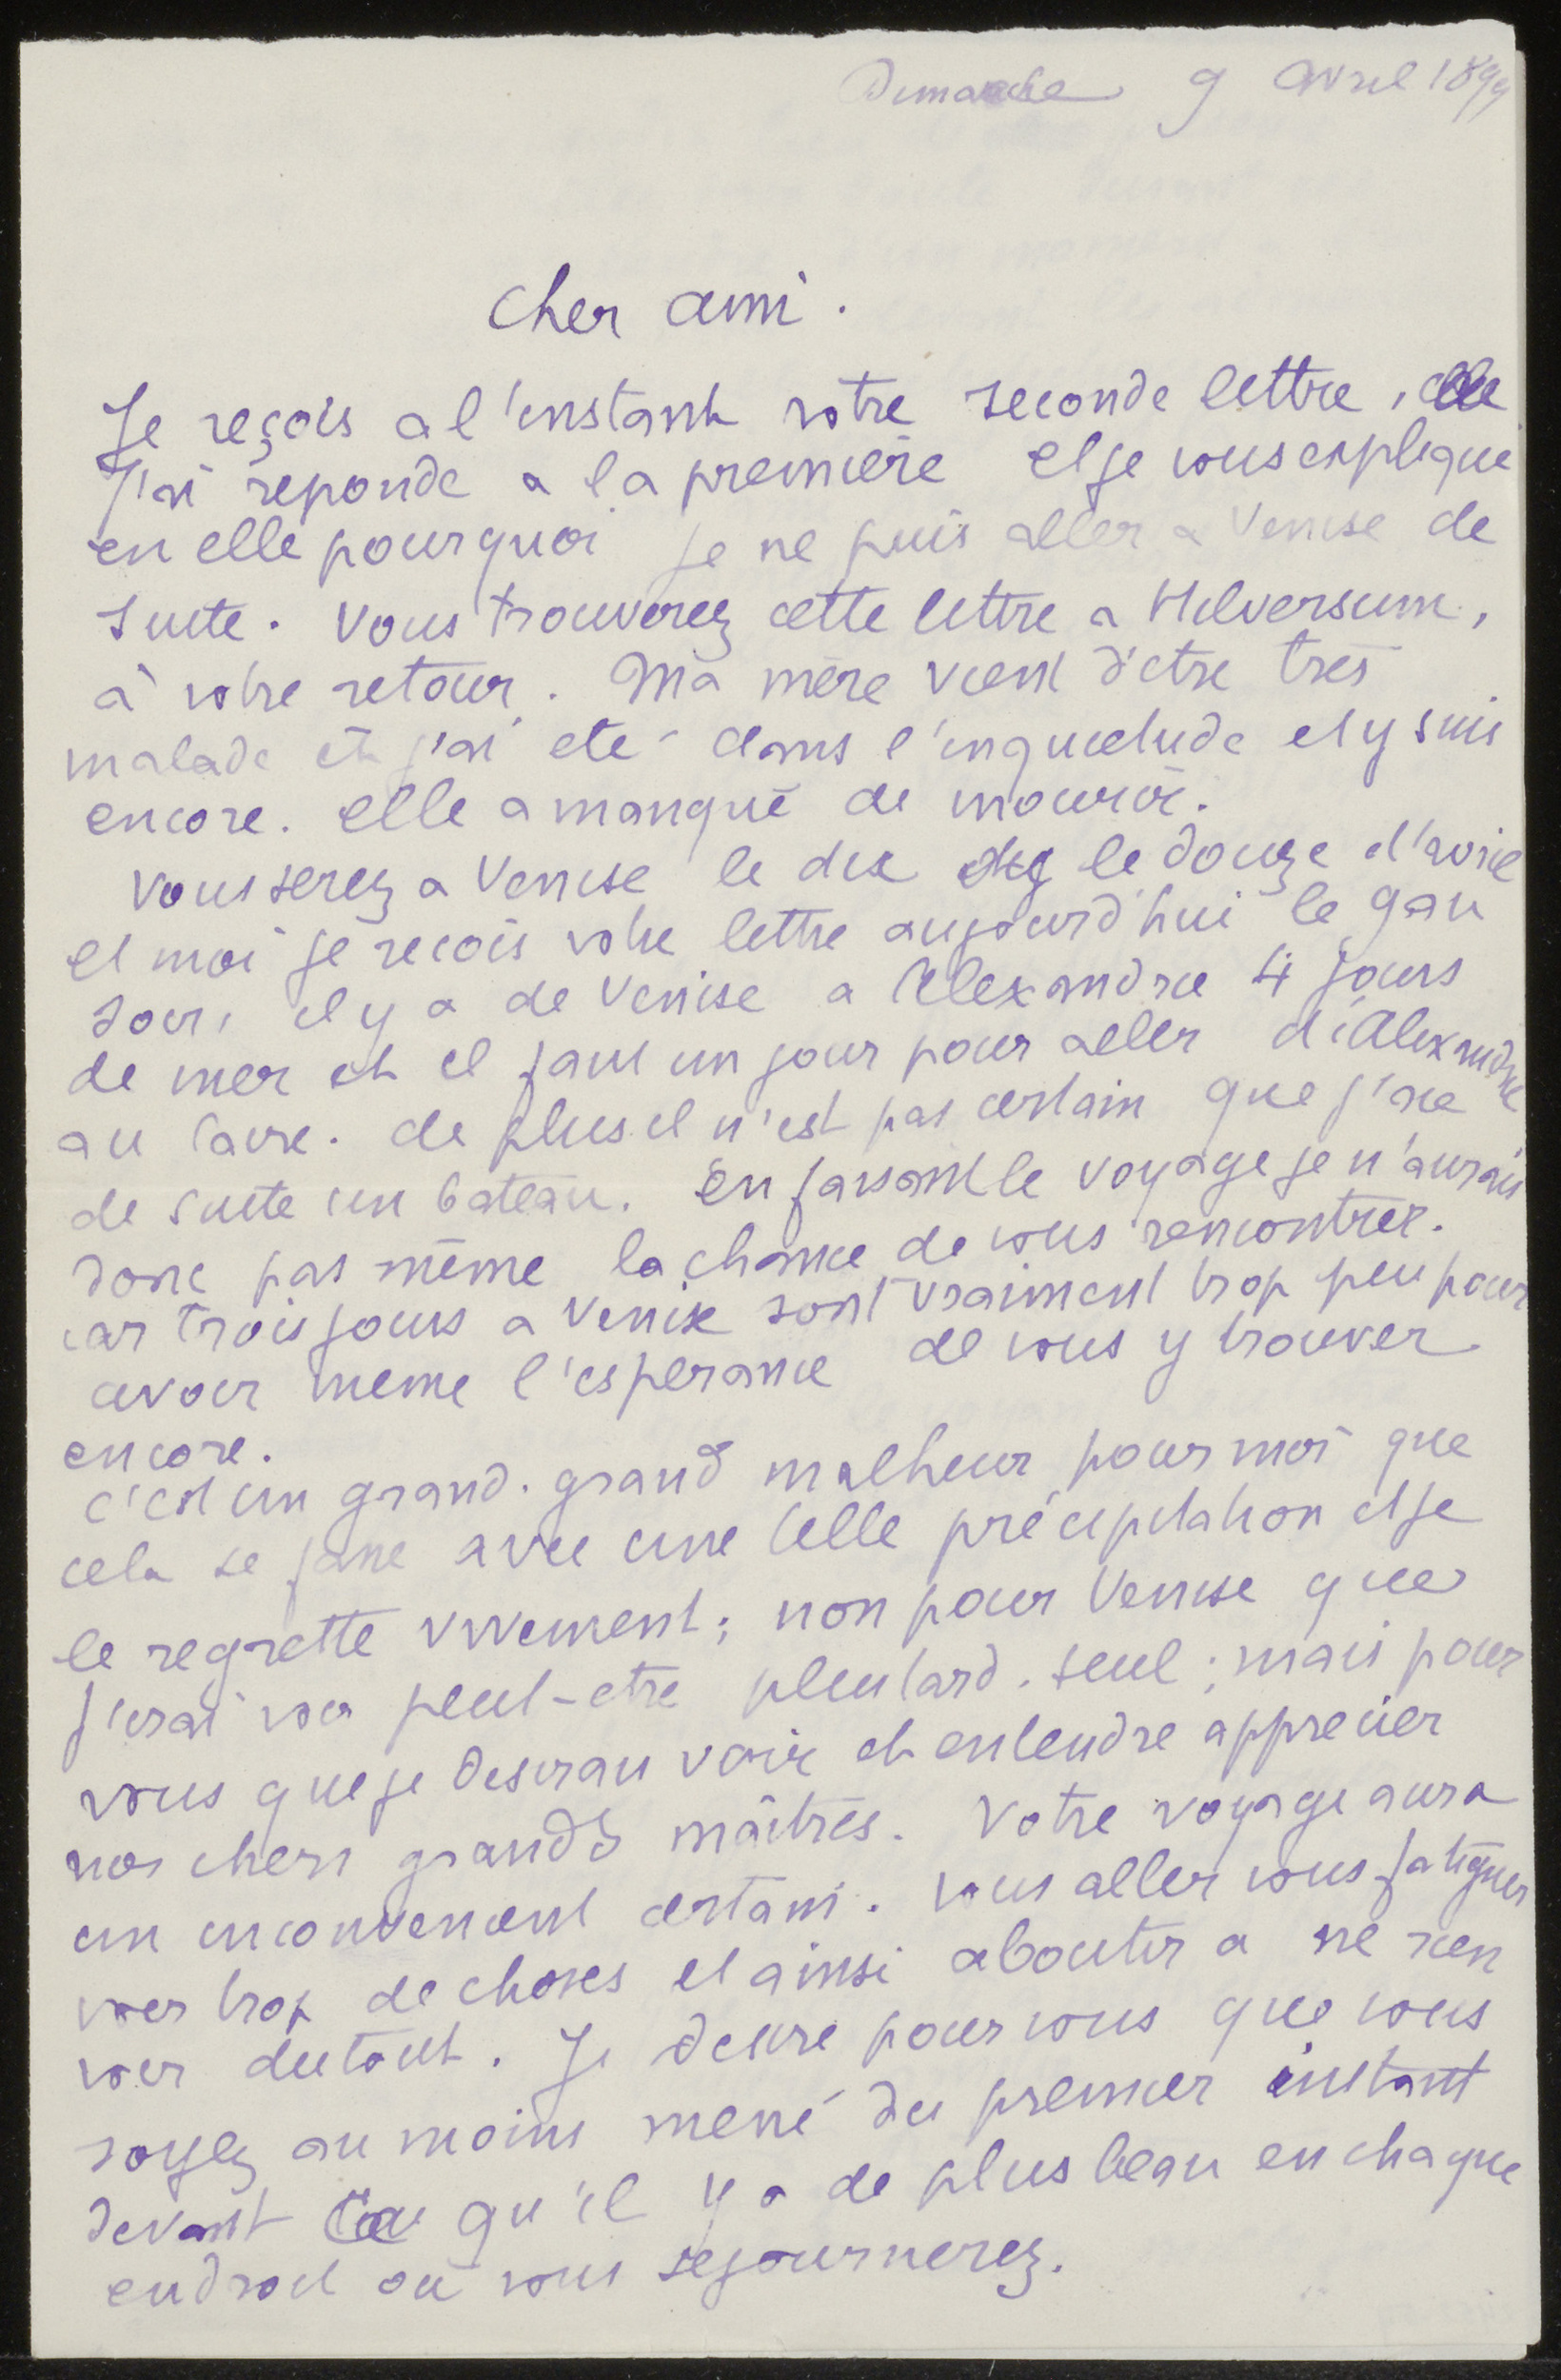 Dimanche 9 Avril 1899
Cher ami.
Je reçois a l'instant votre seconde lettre,
J'ai reponde a la première et je vous explique
en elle pourquoi je ne puis aller a Venise de
suite. Vous trouverez cette lettre a Hilversum,
à votre retour. Ma mère vient d'etre très
malade et j'ai eté dans l'inquietude et y suis
encore. elle a manqué de mourir.
Vous serez a Venise le dix le douze d'avril
et moi je recois votre lettre aujourd'hui le 9 au
soir, il y a de Venise a Alexandrie 4 jours
de mer et il faut un jour pour aller d'Alexandrie
au Caire. de plus il n'est pas certain que j'aie
de suite un bateau. En faisant le voyage je n'aurais
donc pas même la chance de vous rencontrer.
car trois jours a Venise sont vraiment trop peu pour
avoir meme l'esperance de vous y trouver
encore.
c'est un grand. grand malheur pour moi que
cela se fasse avec une telle précipitation et je
le regrette vivement; non pour Venise que
j'irai voir peut-etre plus tard. seul; mais pour
vous que je desirais voir et entendre apprecier
nos chers grands maîtres. Votre voyage aura
un inconvenient certain. vous aller vous fatiguer
voir trop de choses et ainsi aboutir a ne rien
voir du tout. Je desire pour vous que vous
soyez au moins mené du premier instant
devant ce qu'il y a de plus beau en chaque
endroit où vous sejournerez.